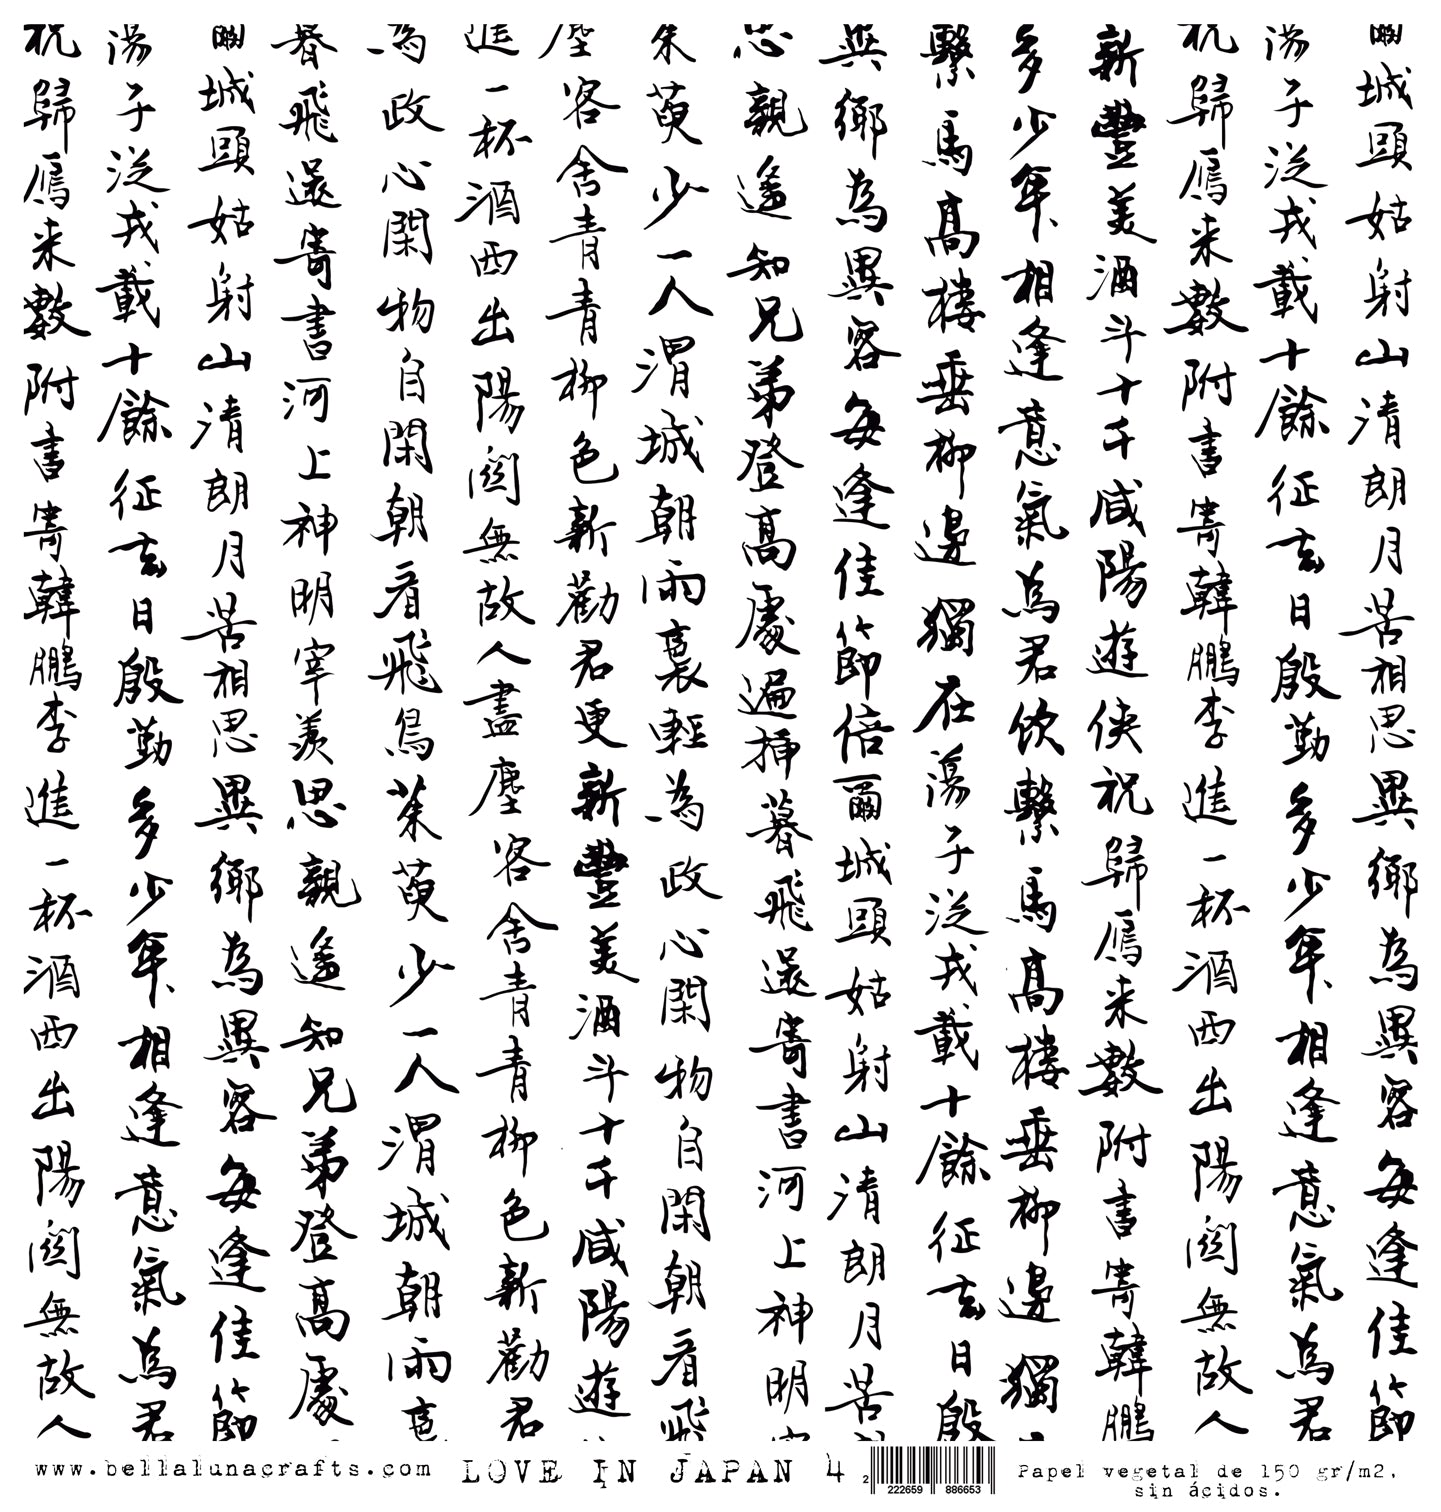 城頭姑射山清朗月苦相思異鄉為異客每逢佳節
蕩子泛戎載十餘征玄日殷勤多少年相逢意氣為君
祝歸鴈来數附書寄韓鵬李進一杯酒西出陽關無故人
新豐美酒斗十千咸陽遊俠祝歸鴈来數附書寄韓鵬
多少年相逢意氣為君飲繫馬高樓垂柳邊獨
繫馬高樓垂柳邊獨在蕩子泛戎載十餘征玄日殷
異鄉為異客每逢佳節倍爾城頭姑射山清朗月苦
思親遙知兄弟登高處遍插暮飛還寄書河上神明
茱萸少一人渭城朝雨裛輕為政心閑物自閑朝看飛
塵客舍青青柳色新勸君更新豐美酒斗十千咸陽遊
進一杯酒西出陽關無故人盡塵客舍青青柳色新勸君
為政心閑物自閑朝看飛鳥茱萸少一人渭城朝雨裛
暮飛還寄書河上神明宰羨思親遙知兄弟登高處
城頭姑射山清朗月苦相思異鄉為異客每逢佳節
蕩子泛戎載十餘征玄日殷勤多少年相逢意氣為君
祝歸鴈来數附書寄韓鵬李進一杯酒西出陽關無故人
www.bellalunacrafts.com LOVE IN JAPAN 4
2 222659 886653
Papel vegetal de 150 gr/m2,
sin ácidos.